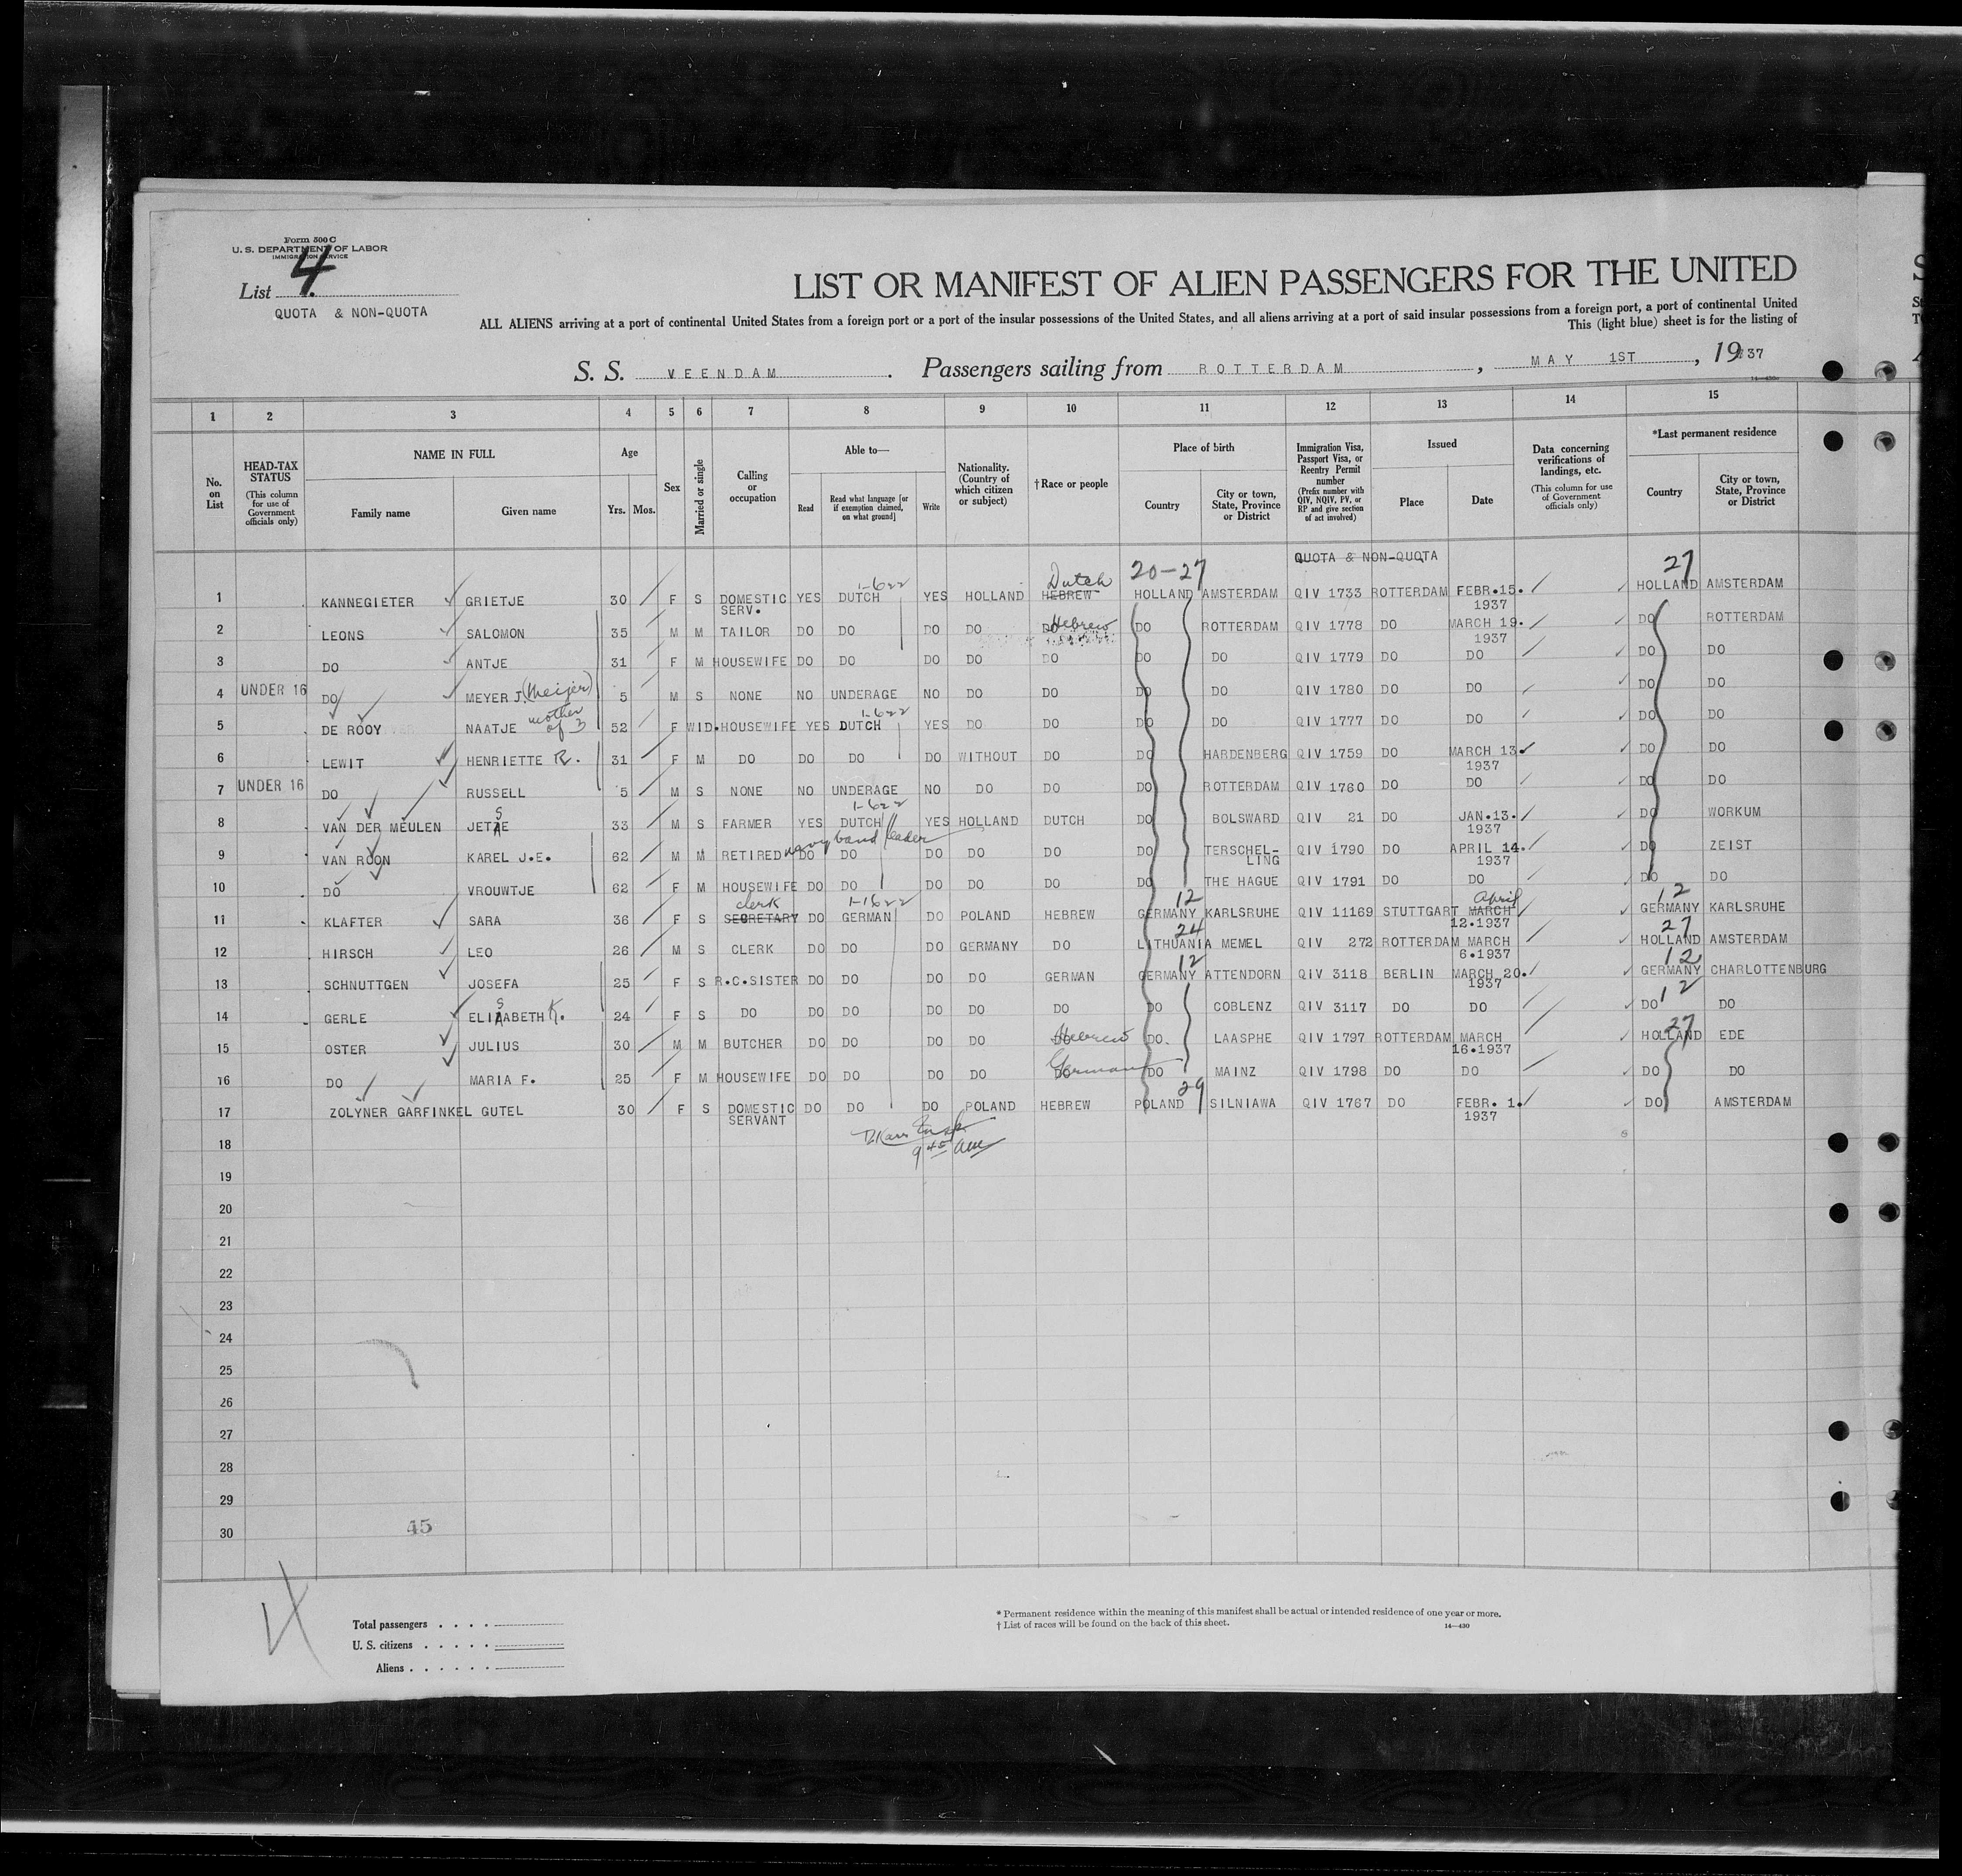 Form 500 C
U. S. DEPARTMENT OF LABOR
IMMIGRATION SERVICE
List 4
QUOTA & NON-QUOTA
LIST OR MANIFEST OF ALIEN PASSENGERS FOR THE UNITED
ALL ALIENS arriving at a port of continental United States from a foreign port or a port of the insular possessions of the United States, and all aliens arriving at a port of said insular possessions from a foreign port, a port of continental United
This (light blue) sheet is for the listing of
S. S. VEENDAM. Passengers sailing from ROTTERDAM, MAY 1ST, 1937
1 2 3 4 5 6 7 8 9 10 11 12 13 14 15
No. on List
HEAD-TAX STATUS (This column for use of Government officials only)
NAME IN FULL
Family name Given name
Age
Yrs. Mos.
Sex
Married or single
Calling or occupation
Able to—
Read Read what language [or if exemption claimed, on what ground] Write
Nationality. (Country of which citizen or subject)
†Race or people
Place of birth
Country City or town, State, Province or District
Immigration Visa, Passport Visa, or Reentry Permit number (Prefix number with QIV, NQIV, PV, or RP and give section of act involved)
Issued
Place Date
Data concerning verifications of landings, etc. (This column for use of Government officials only)
*Last permanent residence
Country City or town, State, Province or District
QUOTA & NON-QUOTA
Dutch 20-27 27
1-622
1 KANNEGIETER GRIETJE 30 F S DOMESTIC SERV. YES DUTCH YES HOLLAND HEBREW HOLLAND AMSTERDAM QIV 1733 ROTTERDAM FEBR.15. 1937 HOLLAND AMSTERDAM
2 LEONS SALOMON 35 M M TAILOR DO DO DO DO DO Hebrew DO ROTTERDAM QIV 1778 DO MARCH 19. 1937 DO ROTTERDAM
3 DO ANTJE 31 F M HOUSEWIFE DO DO DO DO DO DO DO QIV 1779 DO DO DO DO
4 UNDER 16 DO MEYER J. (Meijer) 5 M S NONE NO UNDERAGE NO DO DO DO DO QIV 1780 DO DO DO DO
1-622
5 DE ROOY NAATJE mother of 3 52 F WID. HOUSEWIFE YES DUTCH YES DO DO DO DO QIV 1777 DO DO DO DO
6 LEWIT HENRIETTE R. 31 F M DO DO DO DO WITHOUT DO DO HARDENBERG QIV 1759 DO MARCH 13 1937 DO DO
7 UNDER 16 DO RUSSELL 5 M S NONE NO UNDERAGE NO DO DO DO ROTTERDAM QIV 1760 DO DO DO DO
1-622
8 VAN DER MEULEN JETZE S 33 M S FARMER YES DUTCH YES HOLLAND DUTCH DO BOLSWARD QIV 21 DO JAN.13. 1937 DO WORKUM
navy band leader
9 VAN ROON KAREL J.E. 62 M M RETIRED DO DO DO DO DO DO TERSCHELLING QIV 1790 DO APRIL 14. 1937 DO ZEIST
10 DO VROUWTJE 62 F M HOUSEWIFE DO DO DO DO DO DO THE HAGUE QIV 1791 DO DO DO DO
clerk 1-1622 12 April 12
11 KLAFTER SARA 36 F S SECRETARY DO GERMAN DO POLAND HEBREW GERMANY KARLSRUHE QIV 11169 STUTTGART MARCH 12.1937 GERMANY KARLSRUHE
24 27
12 HIRSCH LEO 26 M S CLERK DO DO DO GERMANY DO LITHUANIA MEMEL QIV 272 ROTTERDAM MARCH 6.1937 HOLLAND AMSTERDAM
12 12
13 SCHNUTTGEN JOSEFA 25 F S R.C.SISTER DO DO DO DO GERMAN GERMANY ATTENDORN QIV 3118 BERLIN MARCH 20. 1937 GERMANY CHARLOTTENBURG
14 GERLE ELIZABETH S K. 24 F S DO DO DO DO DO DO DO COBLENZ QIV 3117 DO DO DO 12 DO
27
15 OSTER JULIUS 30 M M BUTCHER DO DO DO DO Hebrew DO. LAASPHE QIV 1797 ROTTERDAM MARCH 16.1937 HOLLAND EDE
16 DO MARIA F. 25 F M HOUSEWIFE DO DO DO DO DO German DO MAINZ QIV 1798 DO DO DO DO
29
17 ZOLYNER GARFINKEL GUTEL 30 F S DOMESTIC SERVANT DO DO DO POLAND HEBREW POLAND SILNIAWA QIV 1767 DO FEBR. 1. 1937 DO AMSTERDAM
18
9 45 am
19
20
21
22
23
24
25
26
27
28
29
30
45
4
Total passengers
U. S. citizens
Aliens
* Permanent residence within the meaning of this manifest shall be actual or intended residence of one year or more.
† List of races will be found on the back of this sheet.
14—430